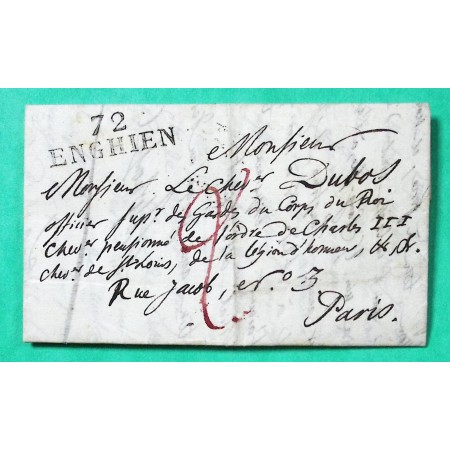 72
ENGHIEN
Monsieur
Monsieur Le Cher Dubos
officier supr. de Gardes du Corps du Roi
Cher. pensionné de l'ordre de Charles III
cher. de St Louis, de la légion d'honneur, &c &c.
Rue Jacob, No 3
Paris.
2